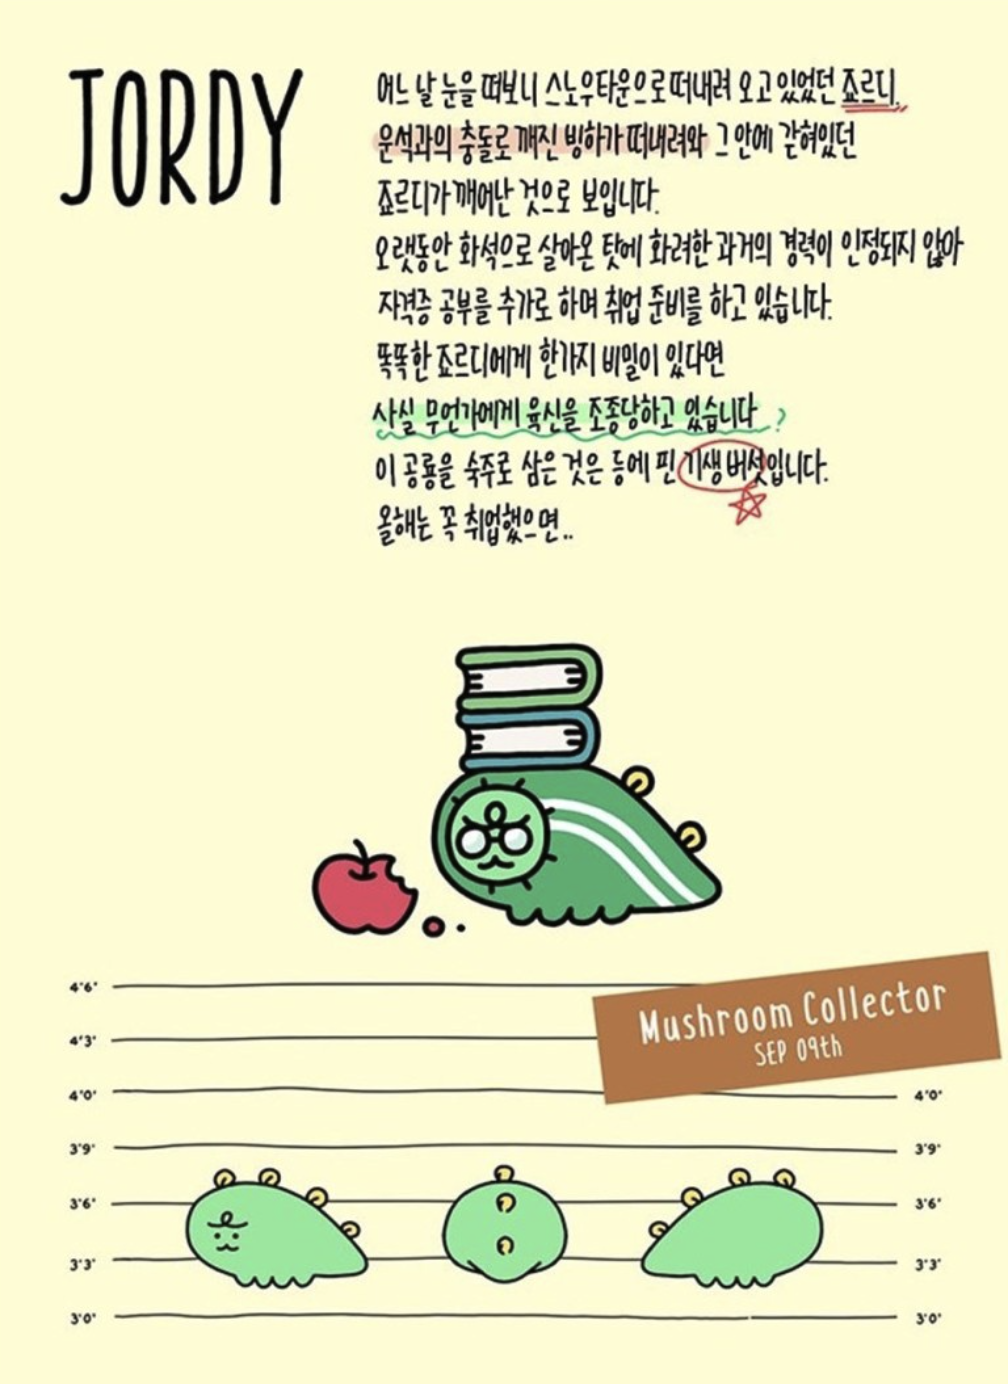 JORDY
어느 날 눈을 떠보니 스노우타운으로 떠내려 오고 있었던 죠르디.
운석과의 충돌로 깨진 빙하가 떠내려와 그 안에 갇혀있던
죠르디가 깨어난 것으로 보입니다.
오랫동안 화석으로 살아온 탓에 화려한 과거의 경력이 인정되지 않아
자격증 공부를 추가로 하며 취업 준비를 하고 있습니다.
똑똑한 죠르디에게 한가지 비밀이 있다면
사실 무언가에게 육신을 조종당하고 있습니다 ?
이 공룡을 숙주로 삼은 것은 등에 핀 기생버섯입니다.
올해는 꼭 취업했으면..
Mushroom Collector
SEP 09th
4'6"
4'3"
4'0" 4'0"
3'9" 3'9"
3'6" 3'6"
3'3" 3'3"
3'0" 3'0"